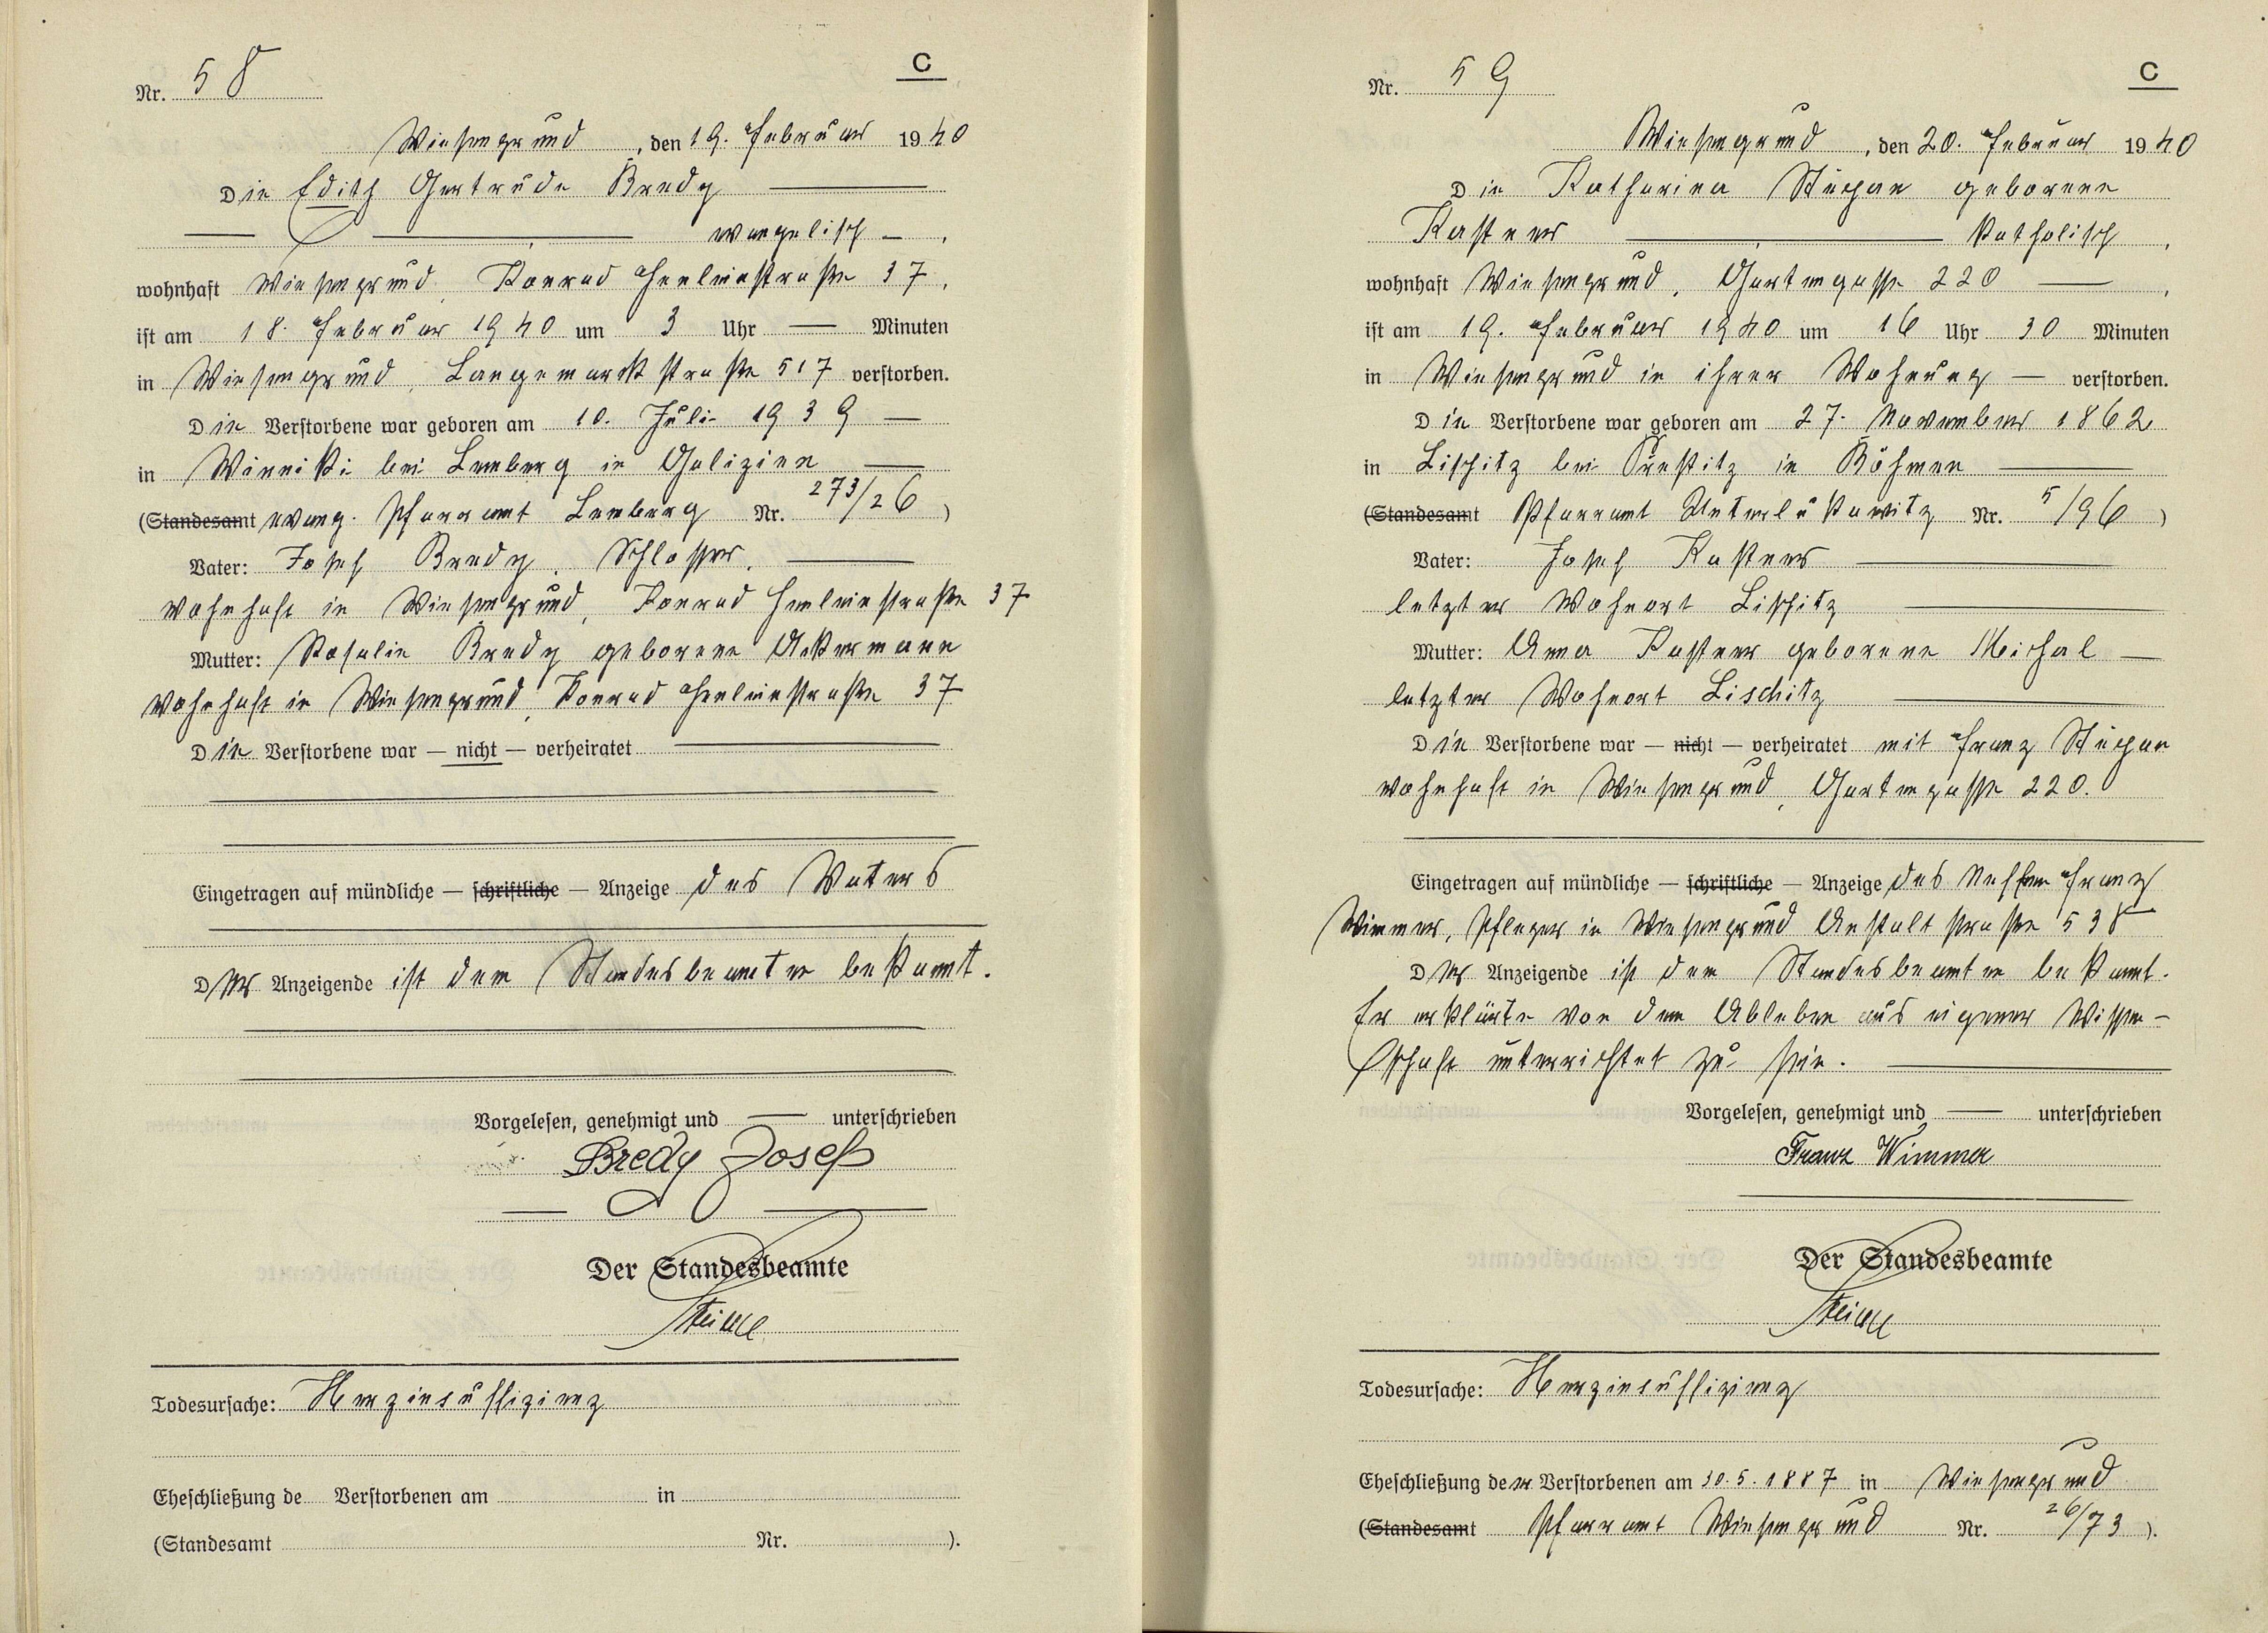 C
Nr. 58
Wiesengrund, den 19. Februar 1940
Die Edith Gertrude Bredy
evangelisch,
wohnhaft Wiesengrund, Konrad Henleinstraße 37,
ist am 18. Februar 1940 um 3 Uhr — Minuten
in Wiesengrund, Langemarkstraße 517 verstorben.
Die Verstorbene war geboren am 10. Juli 1939
in Winniki bei Lemberg in Galizien
(Standesamt evang. Pfarramt Lemberg Nr. 273/26)
Vater: Josef Bredy, Schlosser,
wohnhaft in Wiesengrund, Konrad Henleinstraße 37
Mutter: Rosalie Bredy geborene Ackermann
wohnhaft in Wiesengrund, Konrad Henleinstraße 37
Die Verstorbene war — nicht — verheiratet
Eingetragen auf mündliche — schriftliche — Anzeige des Vaters
Der Anzeigende ist dem Standesbeamten bekannt.
Vorgelesen, genehmigt und — unterschrieben
Bredy Josef
Der Standesbeamte
Todesursache: Herzinsuffizienz
Eheschließung de Verstorbenen am in
(Standesamt Nr. ).
C
Nr. 59
Wiesengrund, den 20. Februar 1940
Die Katharina geborene
Kastner katholisch,
wohnhaft Wiesengrund, Gartengasse 220,
ist am 19. Februar 1940 um 16 Uhr 30 Minuten
in Wiesengrund in ihrer Wohnung — verstorben.
Die Verstorbene war geboren am 27. November 1862
in Lischitz bei Prestitz in Böhmen
(Standesamt Pfarramt Unterlukawitz Nr. 5/96)
Vater: Josef Kastner
letzter Wohnort Lischitz
Mutter: Anna Kastner geborene Michal
letzter Wohnort Lischitz
Die Verstorbene war — nicht — verheiratet mit Franz
wohnhaft in Wiesengrund, Gartengasse 220.
Eingetragen auf mündliche — schriftliche — Anzeige des Neffen Franz
Wimmer, Pfleger in Wiesengrund Anstaltstraße 538
Der Anzeigende ist dem Standesbeamten bekannt.
Er erklärte von dem Ableben aus eigener Wissen-
schaft unterrichtet zu sein.
Vorgelesen, genehmigt und — unterschrieben
Franz Wimmer
Der Standesbeamte
Todesursache: Herzinsuffizienz
Eheschließung der Verstorbenen am 30.5.1887 in Wiesengrund
(Standesamt Pfarramt Wiesengrund Nr. 26/73).